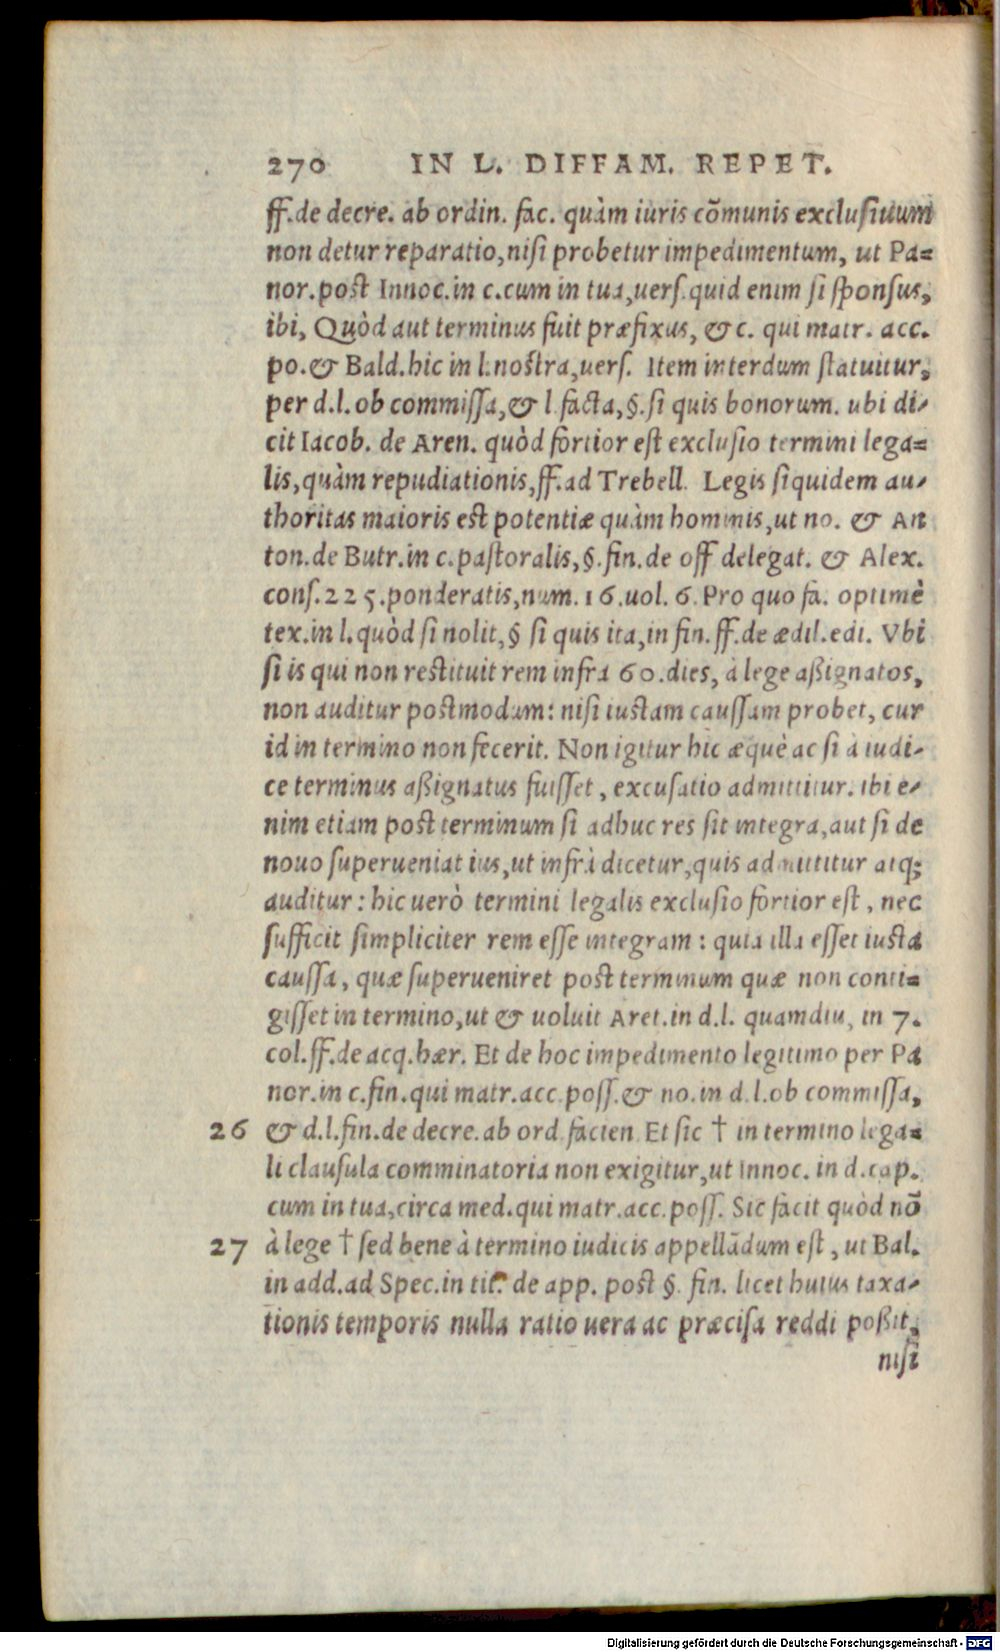 270 IN L. DIFFAM. REPET.
ff. de decre. ab ordin. fac. quàm iuris cõmunis exclusiuum
non detur reparatio, nisi probetur impedimentum, ut Pa=
nor. post Innoc. in c. cum in tua, uers. quid enim si sponsus,
ibi, Quòd aut terminus fuit præfixus, & c. qui matr. acc.
po. & Bald. hic in l. nostra, uers. Item interdum statuitur,
per d. l. ob commissa, & l. facta, §. si quis bonorum. ubi di-
cit Iacob. de Aren. quòd fortior est exclusio termini lega=
lis, quàm repudiationis, ff. ad Trebell. Legis siquidem au-
thoritas maioris est potentiæ quàm hominis, ut no. & An
ton. de Butr. in c. pastoralis, §. fin. de off delegat. & Alex.
cons. 225. ponderatis, num. 16. uol. 6. Pro quo fa. optimè
tex. in l. quòd si nolit, § si quis ita, in fin. ff. de ædil. edi. Vbi
si is qui non restituit rem infra 60. dies, à lege aßignatos,
non auditur postmodum: nisi iustam caussam probet, cur
id in termino non fecerit. Non igitur hic æquè ac si à iudi-
ce terminus aßignatus fuisset, excusatio admittitur. ibi e-
nim etiam post terminum si adhuc res sit integra, aut si de
nouo superueniat ius, ut infrà dicetur, quis admittitur atq;
auditur: hic uerò termini legalis exclusio fortior est, nec
sufficit simpliciter rem esse integram: quia illa esset iusta
caussa, quæ superueniret post terminum quæ non conti=
gisset in termino, ut & uoluit Aret. in d. l. quamdiu, in 7.
col. ff. de acq. hær. Et de hoc impedimento legitimo per Pa
nor. in c. fin. qui matr. acc. poss. & no. in d. l. ob commissa,
26 & d. l. fin. de decre. ab ord. facien. Et sic † in termino lega=
li clausula comminatoria non exigitur, ut Innoc. in d. cap.
cum in tua, circa med. qui matr. acc. poss. Sic facit quòd nõ
27 à lege † sed bene à termino iudicis appellãdum est, ut Bal.
in add. ad Spec. in tit. de app. post §. fin. licet huius taxa-
tionis temporis nulla ratio uera ac præcisa reddi poßit,
nisi
Digitalisierung gefördert durch die Deutsche Forschungsgemeinschaft - DFG